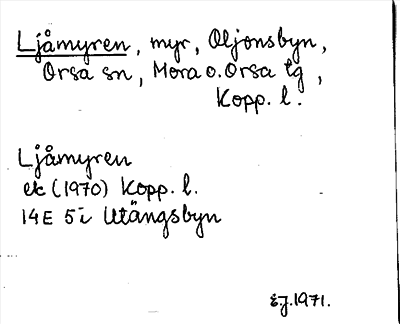 Ljåmyren, myr, Oljonsbyn,
Orsa sn, Mora o. Orsa tg,
Kopp. l.
Ljåmyren
ek (1970) Kopp. l.
14E 5i Utängsbyn
EJ. 1971.